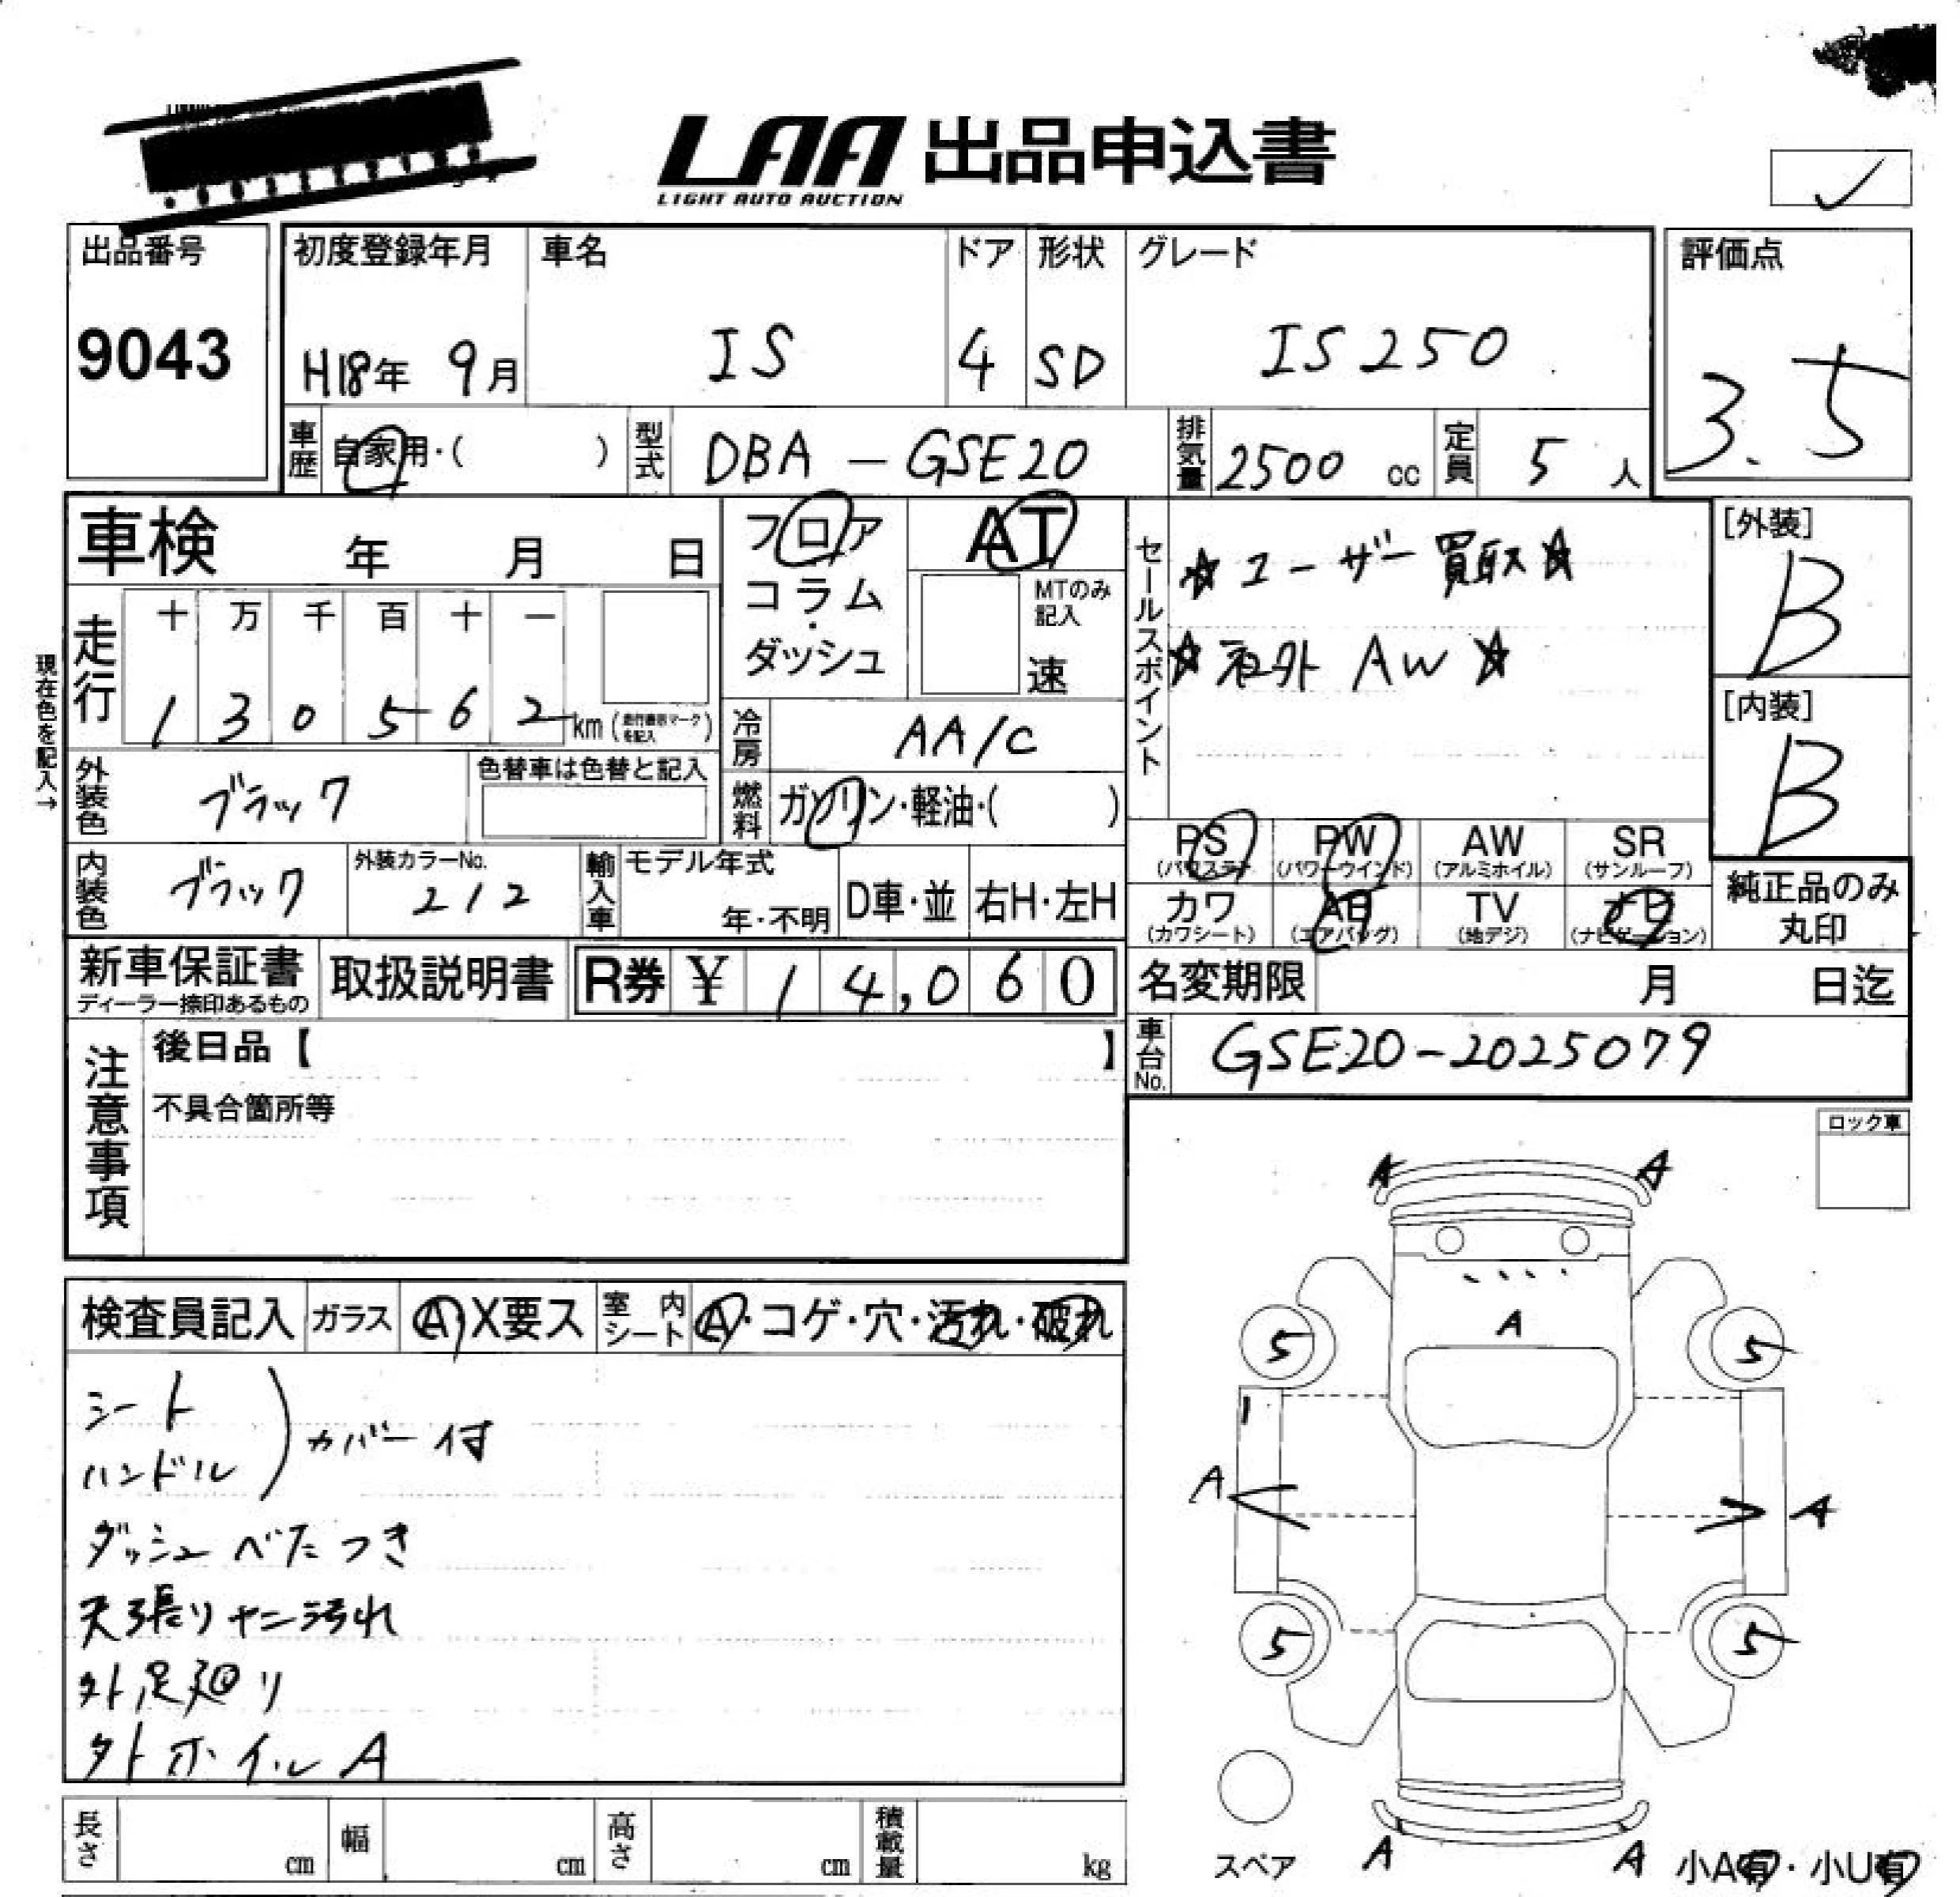 LAA 出品申込書
LIGHT AUTO AUCTION
出品番号
9043
初度登録年月
H18年 9月
車名
IS
ドア
4
形状
SD
グレード
IS250
評価点
3.5
車歴
自家用・( )
型式
DBA-GSE20
排気量
2500 cc
定員
5 人
車検 年 月 日
フロア
コラム
・
ダッシュ
AT
MTのみ
記入
速
セールスポイント
☆ユーザー買取☆
☆社外 AW☆
[外装]
B
[内装]
B
現在色を記入→
走行
十 万 千 百 十 一
1 3 0 5 6 2 km (走行表示マークを記入)
冷房
AA/C
外装色
ブラック
色替車は色替と記入
燃料
ガソリン・軽油・( )
PS
(パワステ)
PW
(パワーウインド)
AW
(アルミホイル)
SR
(サンルーフ)
カワ
(カワシート)
AB
(エアバック)
TV
(地デジ)
ナビ
(ナビゲーション)
純正品のみ
丸印
内装色
ブラック
外装カラーNo.
212
輸入車
モデル年式
年・不明
D車・並
右H・左H
新車保証書
ディーラー捺印あるもの
取扱説明書
R券 ¥ 14,060
名変期限 月 日迄
注意事項
後日品【 】
不具合箇所等
車台No.
GSE20-2025079
ロック車
検査員記入
ガラス
A X要ス
室内シート
A・コゲ・穴・汚れ・破れ
シート
ハンドル
) カバー付
ダッシュ べたつき
天張りヤニ汚れ
外足廻り
外ホイル A
A A
A
5 5
A A
5 5
A A
スペア
小A有・小U有
長さ cm
幅 cm
高さ cm
積載量 kg